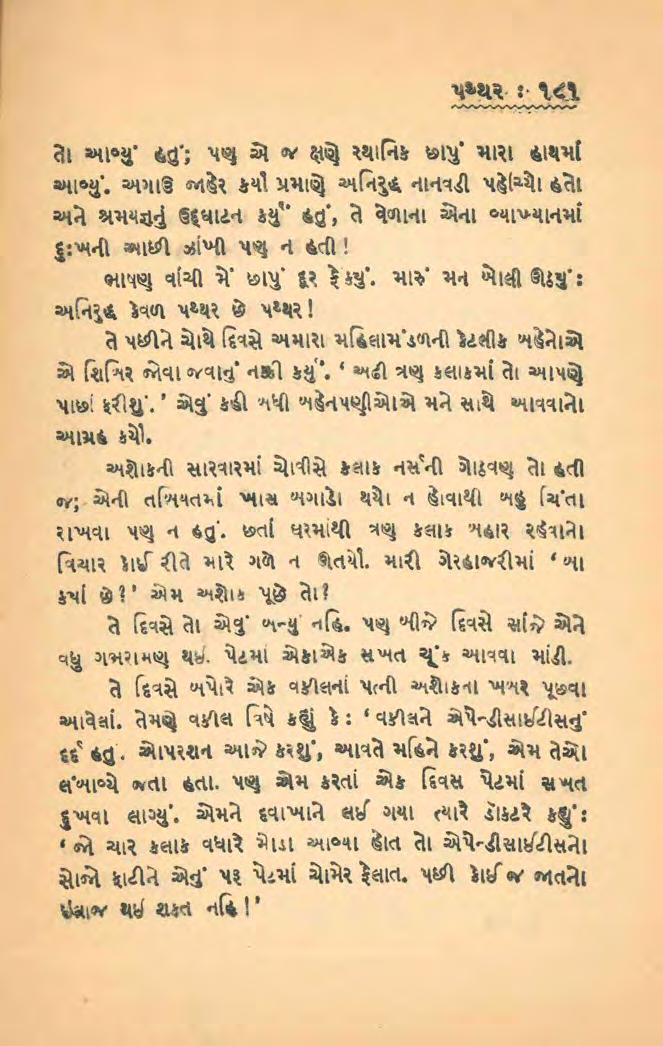 પથ્થર : ૧૮૧
તો આવ્યું હતું; પણ એ જ ક્ષણે સ્થાનિક છાપું મારા હાથમાં
આવ્યું. અગાઉ જાહેર કર્યા પ્રમાણે અનિરુદ્ધ નાનવડી પહોંચ્યો હતો
અને શ્રમયજ્ઞનું ઉદ્ઘાટન કર્યું હતું, તે વેળાના એના વ્યાખ્યાનમાં
દુઃખની આછી ઝાંખી પણ ન હતી !
ભાષણ વાંચી મેં છાપું દૂર ફેંક્યું. મારું મન બોલી ઊઠ્યું :
અનિરુદ્ધ કેવળ પથ્થર છે પથ્થર !
તે પછીને ચોથે દિવસે અમારા મહિલામંડળની કેટલીક બહેનોએ
એ શિબિર જોવા જવાનું નક્કી કર્યું. ‘ અઢી ત્રણ કલાકમાં તો આપણે
પાછાં ફરીશું. ’ એવું કહી બધી બહેનપણીઓએ મને સાથે આવવાનો
આગ્રહ કર્યો.
અશોકની સારવારમાં ચોવીસે કલાક નર્સની ગોઠવણ તો હતી
જ; એની તબિયતમાં ખાસ બગાડો થયો ન હોવાથી બહુ ચિંતા
રાખવા પણ ન હતું. છતાં ઘરમાંથી ત્રણ કલાક બહાર રહેવાનો
વિચાર કોઈ રીતે મારે ગળે ન ઊતર્યો. મારી ગેરહાજરીમાં ‘ બા
ક્યાં છે ? ’ એમ અશોક પૂછે તો ?
તે દિવસે તો એવું બન્યું નહિ. પણ બીજે દિવસે સાંજે એને
વધુ ગભરામણ થઈ. પેટમાં એકાએક સખત ચૂંક આવવા માંડી.
તે દિવસે બપોરે એક વકીલનાં પત્ની અશોકના ખબર પૂછવા
આવેલાં. તેમણે વકીલ વિષે કહ્યું કે : ‘ વકીલને એપેન્ડીસાઈટીસનું
દર્દ હતું. ઓપરશન આજે કરશું, આવતે મહિને કરશું, એમ તેઓ
લંબાવ્યે જતા હતા. પણ એમ કરતાં એક દિવસ પેટમાં સખત
દુખવા લાગ્યું. એમને દવાખાને લઈ ગયા ત્યારે ડૉક્ટરે કહ્યું :
‘ જો ચાર કલાક વધારે મોડા આવ્યા હોત તો એપેન્ડીસાઈટીસનો
સોજો ફાટીને એનું પરૂ પેટમાં ચોમેર ફેલાત. પછી કોઈ જ જાતનો
ઇલાજ થઈ શકત નહિ ! ’